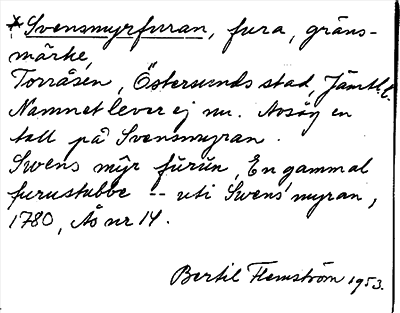 *Svensmyrfuran, fura, gräns-
märke,
Torråsen, Östersunds stad, Jämtl.
Namnet lever ej nu. Avsåg en
tall på Svensmyran.
Swens mÿr fūrūn, En gammal
furustubbe -- uti Swens'myran,
1780, Ås nr 14.
Bertil Flemström 1953.